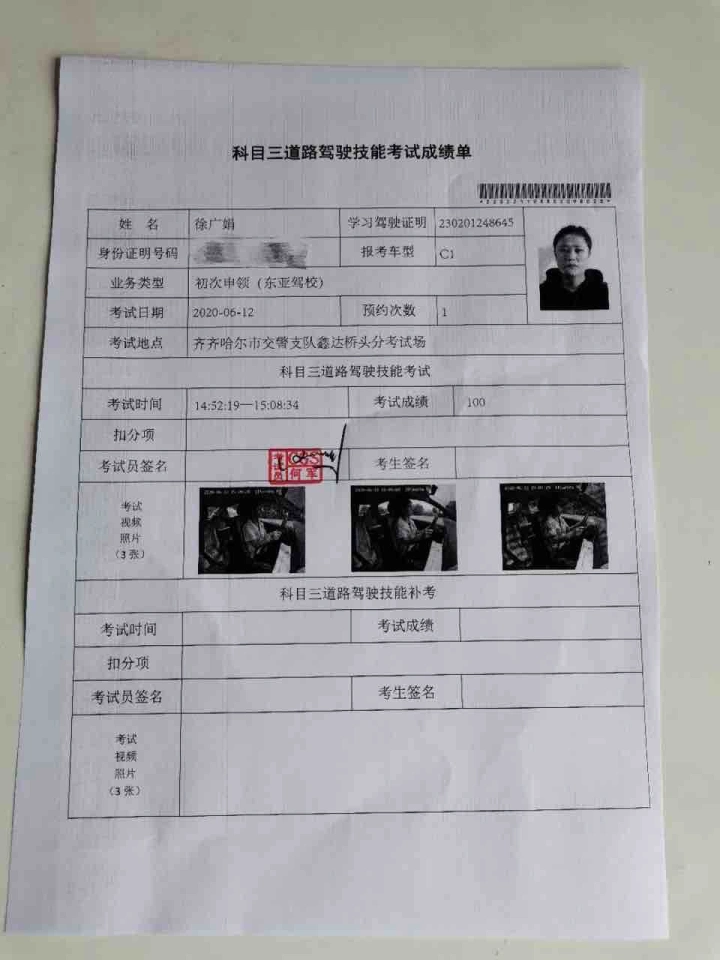 科目三道路驾驶技能考试成绩单
姓 名 徐广娟 学习驾驶证明 230201248645
身份证明号码 报考车型 C1
业务类型 初次申领（东亚驾校）
考试日期 2020-06-12 预约次数 1
考试地点 齐齐哈尔市交警支队鑫达桥头分考试场
科目三道路驾驶技能考试
考试时间 14:52:19—15:08:34 考试成绩 100
扣分项
考试员签名 考生签名
考试
视频
照片
（3 张）
科目三道路驾驶技能补考
考试时间 考试成绩
扣分项
考试员签名 考生签名
考试
视频
照片
（3 张）